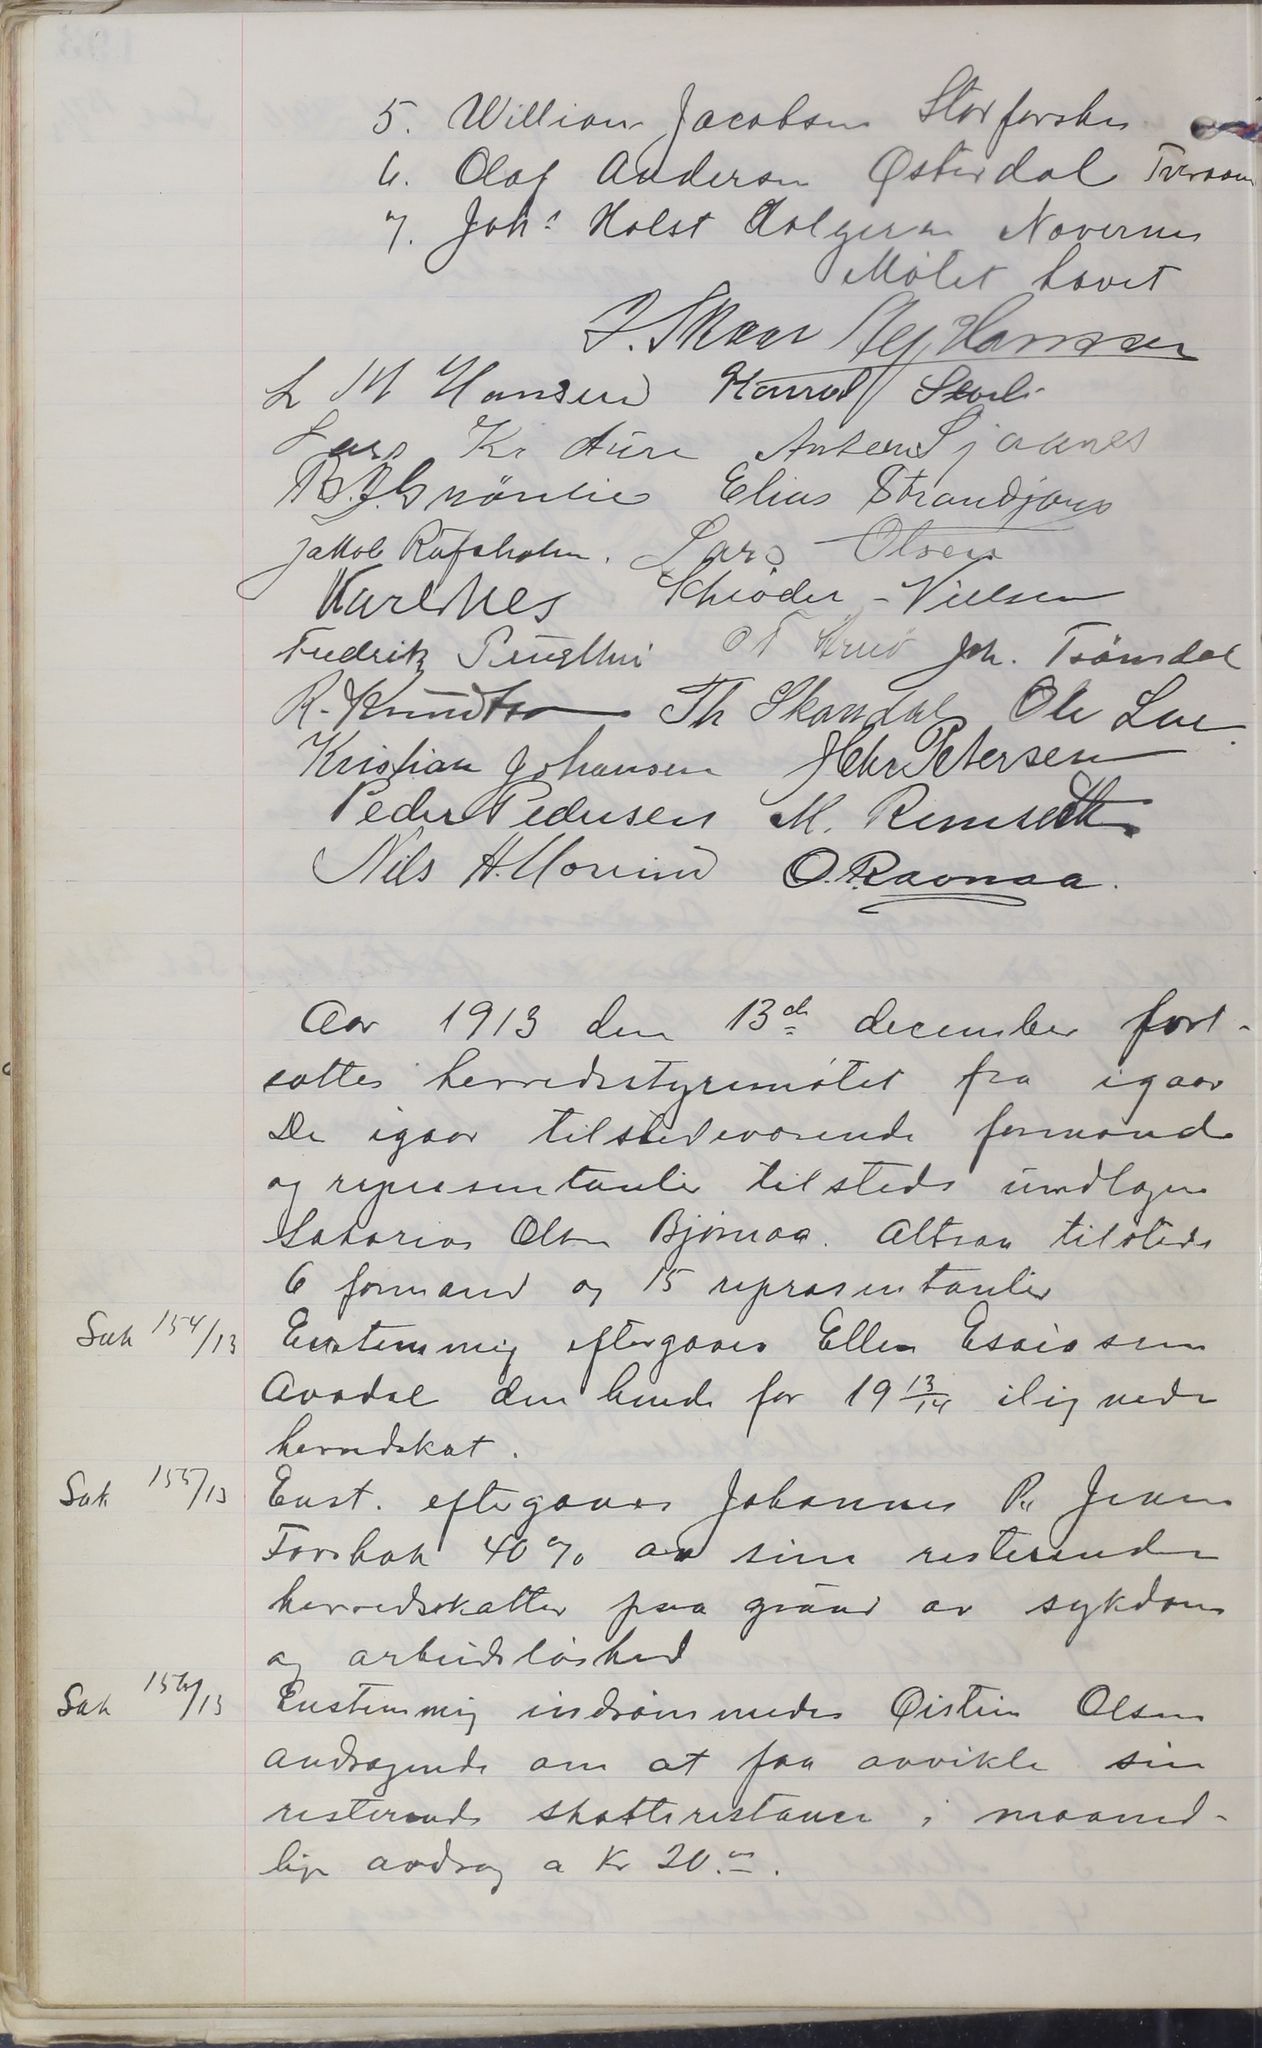 5. William Jacobsen Storforshei
6. Olaf Andersen Østerdal Tveraaen
7. Johs Holst Holgersen Nævernes
Møtet hævet
I. Skaar Alf Hanssen
L M Hansen Konrad
Lars Kr Aune Anton Sjaanes
B. J. Grönlie Elias Strandjord
Jakob Rufsholm. Lars Olsen
Karl Nes Schrøder-Nielsen
Fredrik O T Joh. Trönsdal
R. Knudtsen Th Skandal Ole Lue
Kristian Johansen J Chr Petersen
Peder Pedersen M. Remseth
Nils H. O. Ravnaa.
Aar 1913 den 13de december fort-
sattes herredsstyremøtet fra igaar
De igaar tilstedeværende formænd
og repræsentanter tilstede undtagen
Sakarias Olsen Bjørnaa. Altsaa tilstede
6 formænd og 15 repræsentanter
Sak 154/13 Enstemmig eftergaves Ellen Esaiasen
Avadal den hende for 19 13/14 ilignede
herredskat.
Sak 155/13 Enst. eftergaves Johannes P. Jensen
Forsbak 40% av sine resterende
herredsskatter paa grund av sykdom
og arbeidsløshed
Sak 156/13 Enstemmig indrømmedes Øistein Olsen
andragende om at faa avvikle sin
resterende skatterestance i maaned-
lige avdrag a Kr 20.-.